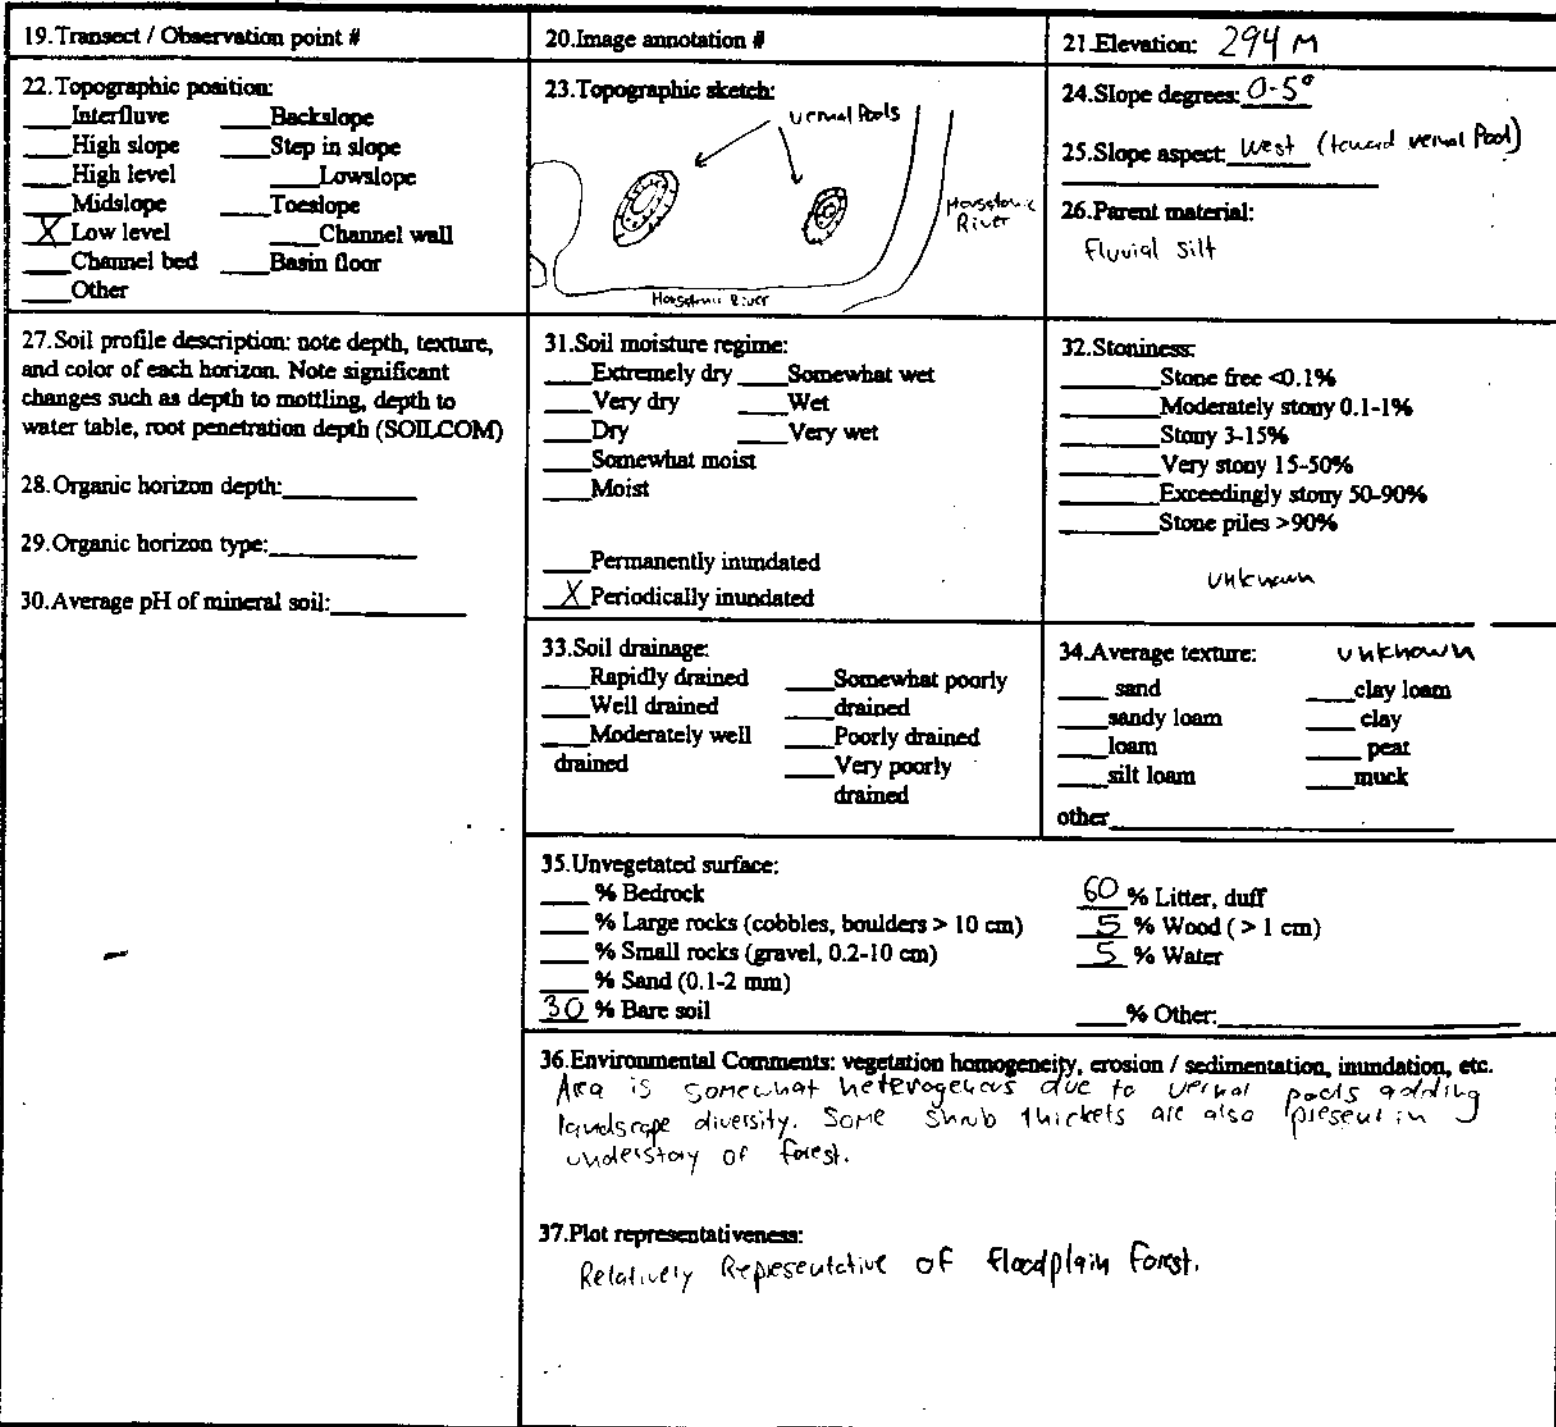 19.Transect / Observation point #
20.Image annotation #
21.Elevation: 294 M
22.Topographic position:
___Interfluve ___Backslope
___High slope ___Step in slope
___High level ___Lowslope
___Midslope ___Toeslope
_X_Low level ___Channel wall
___Channel bed ___Basin floor
___Other
23.Topographic sketch:
vernal Pools
Housatonic
River
Housatonic River
24.Slope degrees: 0-5°
25.Slope aspect: West (toward vernal Pool)
26.Parent material:
Fluvial silt
27.Soil profile description: note depth, texture,
and color of each horizon. Note significant
changes such as depth to mottling, depth to
water table, root penetration depth (SOILCOM)
28.Organic horizon depth:_________
29.Organic horizon type:__________
30.Average pH of mineral soil:_________
31.Soil moisture regime:
___Extremely dry ___Somewhat wet
___Very dry ___Wet
___Dry ___Very wet
___Somewhat moist
___Moist
___Permanently inundated
_X_Periodically inundated
32.Stoniness:
_______Stone free <0.1%
_______Moderately stony 0.1-1%
_______Stony 3-15%
_______Very stony 15-50%
_______Exceedingly stony 50-90%
_______Stone piles >90%
unknown
33.Soil drainage:
___Rapidly drained ___Somewhat poorly
___Well drained ___drained
___Moderately well ___Poorly drained
drained ___Very poorly
drained
34.Average texture: unknown
___ sand ___clay loam
___sandy loam ___ clay
___loam ___ peat
___silt loam ___muck
other______________________
35.Unvegetated surface:
___ % Bedrock 60 % Litter, duff
___ % Large rocks (cobbles, boulders > 10 cm) 5 % Wood ( > 1 cm)
___ % Small rocks (gravel, 0.2-10 cm) 5 % Water
___ % Sand (0.1-2 mm)
30 % Bare soil ___% Other:____________________
36.Environmental Comments: vegetation homogeneity, erosion / sedimentation, inundation, etc.
Area is somewhat heterogenous due to vernal pools adding
landscape diversity. Some shrub thickets are also present in
understory of forest.
37.Plot representativeness:
Relatively Representative of floodplain forest.